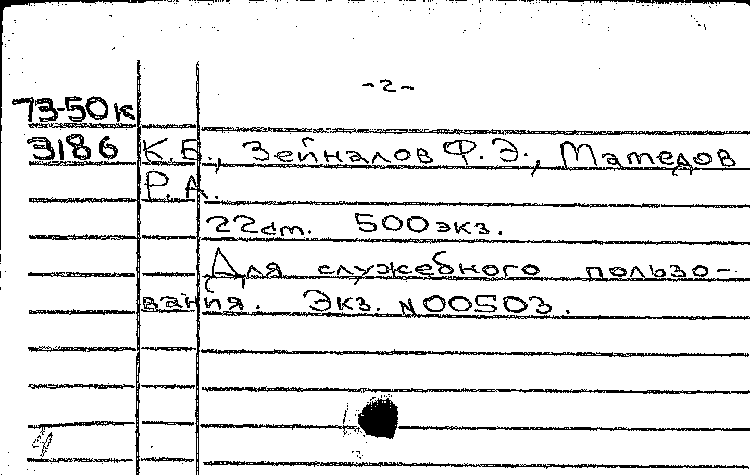 -2-
73-50к
3186 К.Б., Зейналов Ф.Э., Мамедов
Р.А.
22см. 500экз.
Для служебного пользо-
вания. Экз. N00503.